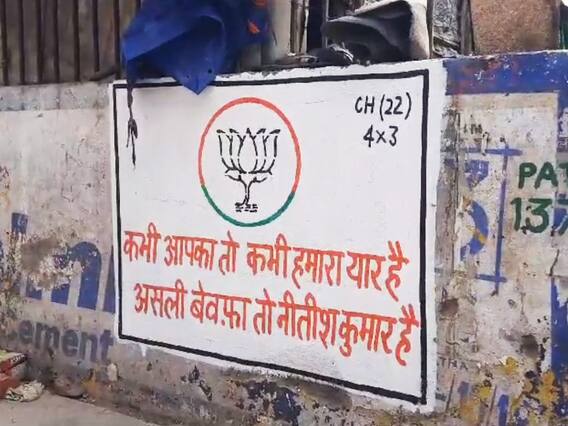 CH (22)
4×3
कभी आपका तो कभी हमारा यार है
असली बेवफ़ा तो नीतीश कुमार है
PA
137
ement